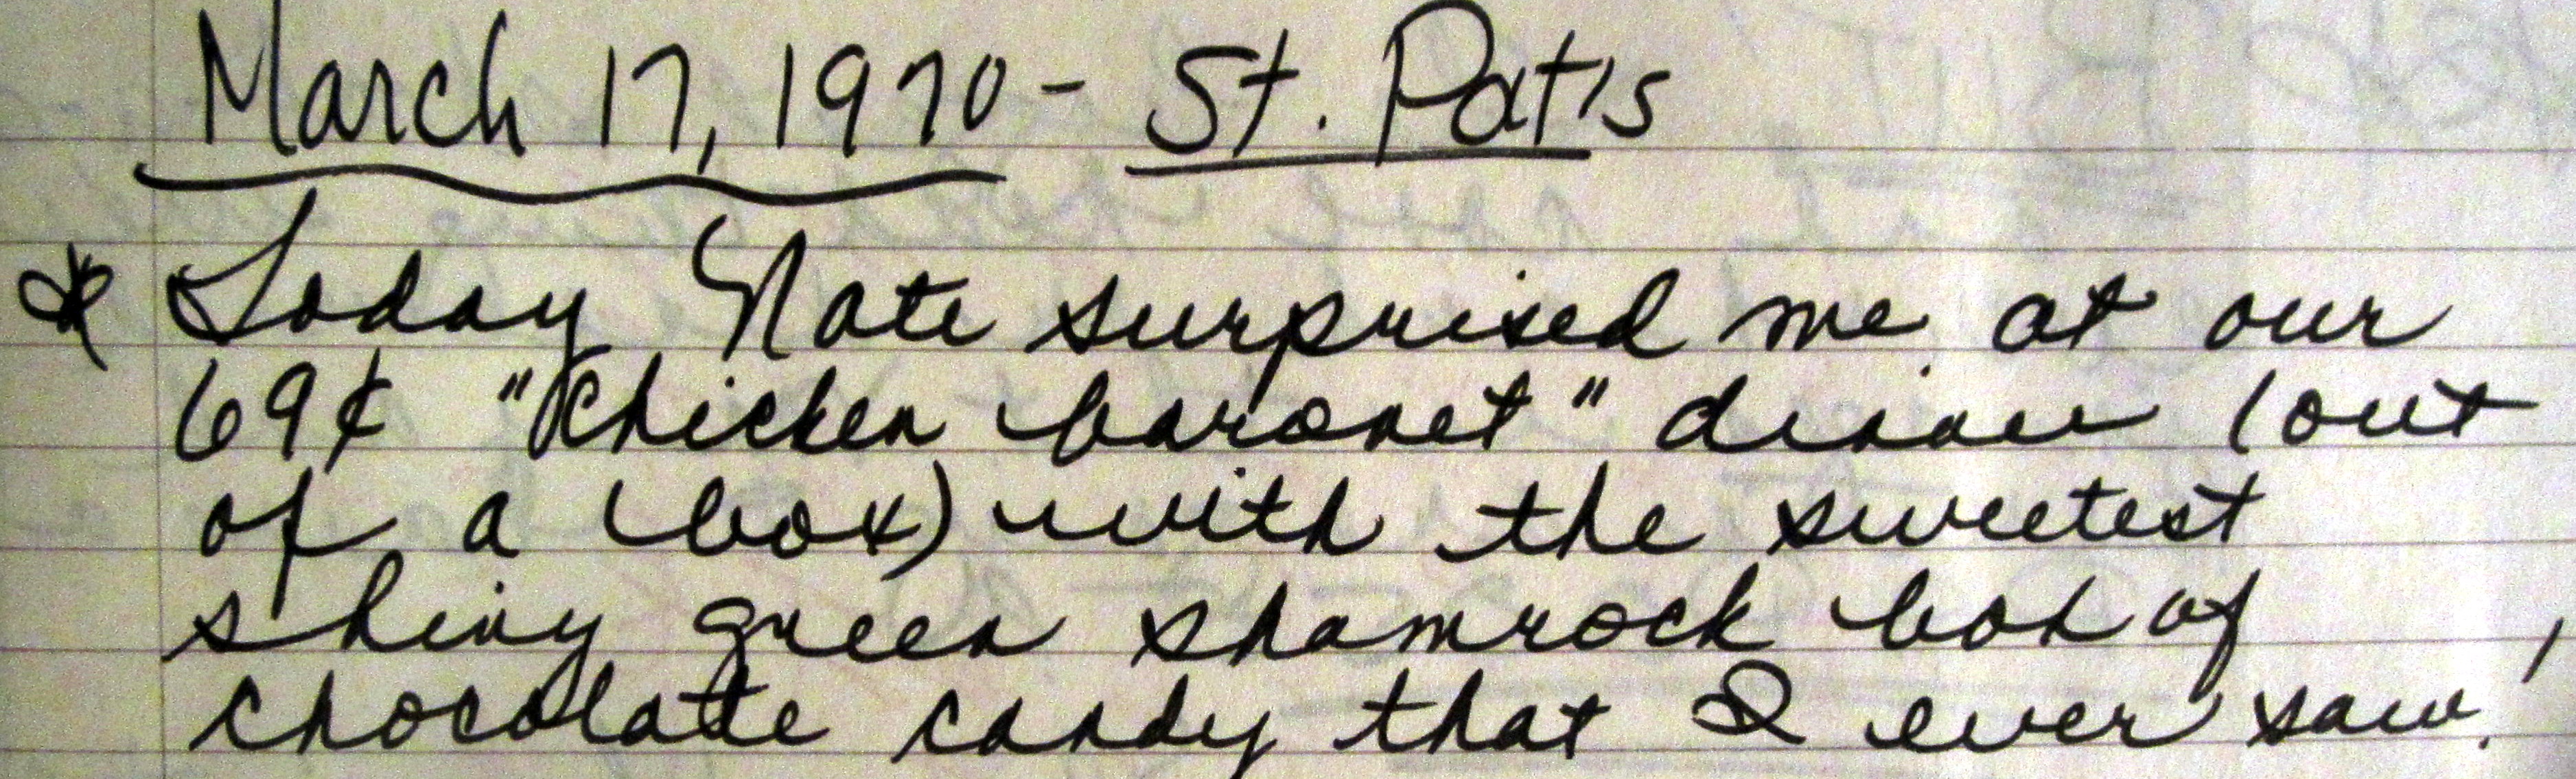 March 17, 1970 - St. Pat's
* Today Nate surprised me at our
69¢ "Chicken baronet" dinner (out
of a box) with the sweetest
shiny green shamrock box of
chocolate candy that I ever saw!